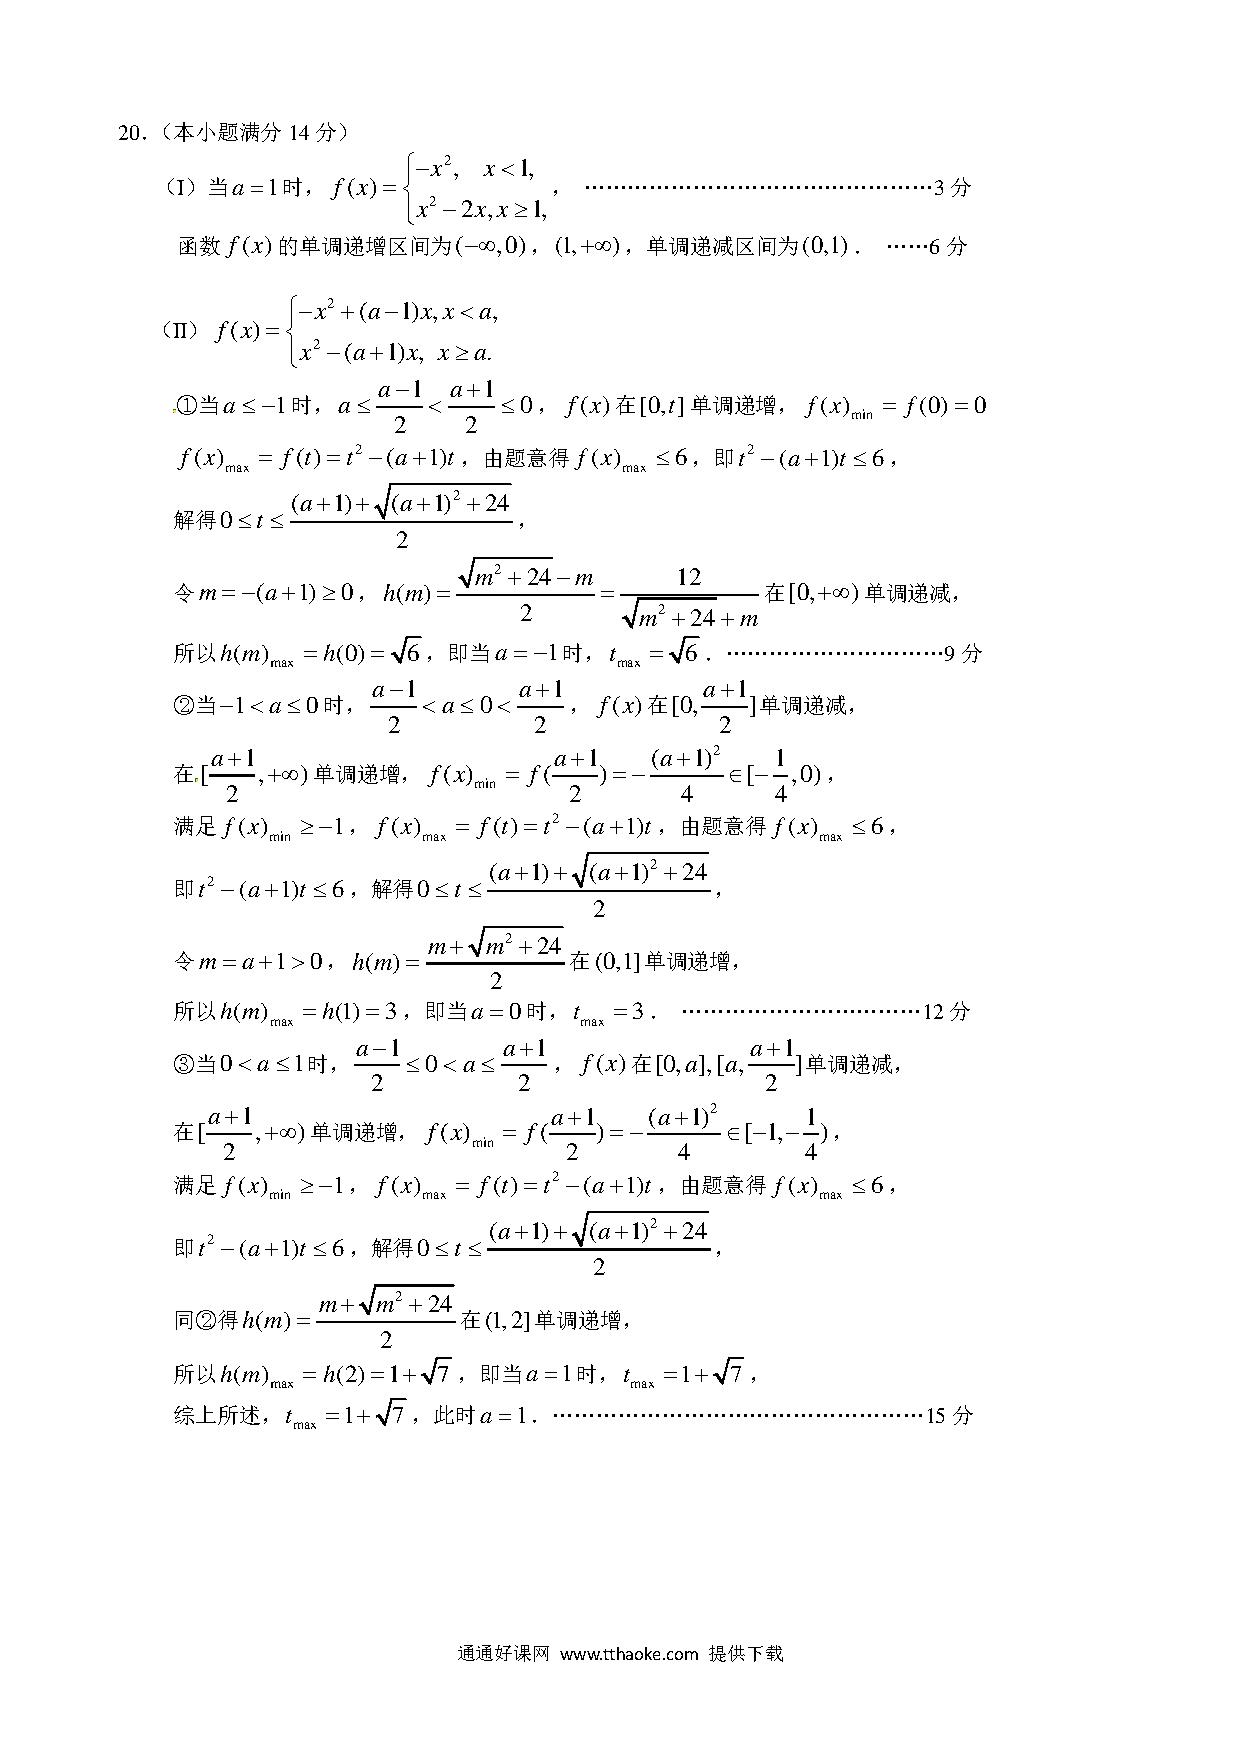 20．（本小题满分 14 分）
（I）当 a =1时， f(x) = { −x², x <1, x² −2x, x ≥1, ， ………………………………………3 分
函数 f(x) 的单调递增区间为(−∞,0)，(1,+∞)，单调递减区间为(0,1)． ……6 分
（II） f(x) = { −x² +(a−1)x, x < a, x² −(a+1)x, x ≥ a.
①当a ≤ −1时，a ≤ (a−1)/2 < (a+1)/2 ≤ 0， f(x) 在[0,t] 单调递增， f(x)min = f(0) = 0
f(x)max = f(t) = t² −(a+1)t，由题意得 f(x)max ≤ 6，即t² −(a+1)t ≤ 6，
解得0 ≤ t ≤ ((a+1)+√((a+1)² +24))/2，
令m = −(a+1) ≥ 0，h(m) = (√(m² +24) − m)/2 = 12/(√(m² +24) + m) 在[0,+∞) 单调递减，
所以h(m)max = h(0) = √6，即当a = −1时，tmax = √6．…………………………9 分
②当−1< a ≤ 0时，(a−1)/2 < a ≤ 0 < (a+1)/2， f(x) 在[0, (a+1)/2]单调递减，
在[(a+1)/2,+∞) 单调递增， f(x)min = f((a+1)/2) = −(a+1)²/4 ∈[−1/4,0)，
满足 f(x)min ≥ −1， f(x)max = f(t) = t² −(a+1)t，由题意得 f(x)max ≤ 6，
即t² −(a+1)t ≤ 6，解得0 ≤ t ≤ ((a+1)+√((a+1)² +24))/2，
令m = a+1 > 0，h(m) = (m+√(m² +24))/2 在(0,1]单调递增，
所以h(m)max = h(1) = 3，即当a = 0时，tmax = 3． ……………………………12分
③当0 < a ≤1时，(a−1)/2 ≤ 0 < a ≤ (a+1)/2， f(x) 在[0,a],[a, (a+1)/2]单调递减，
在[(a+1)/2,+∞) 单调递增， f(x)min = f((a+1)/2) = −(a+1)²/4 ∈[−1,−1/4)，
满足 f(x)min ≥ −1， f(x)max = f(t) = t² −(a+1)t，由题意得 f(x)max ≤ 6，
即t² −(a+1)t ≤ 6，解得0 ≤ t ≤ ((a+1)+√((a+1)² +24))/2，
同②得h(m) = (m+√(m² +24))/2 在(1,2]单调递增，
所以h(m)max = h(2) = 1+√7，即当a =1时，tmax =1+√7，
综上所述，tmax =1+√7，此时a =1．……………………………………………15 分
通通好课网 www.tthaoke.com 提供下载